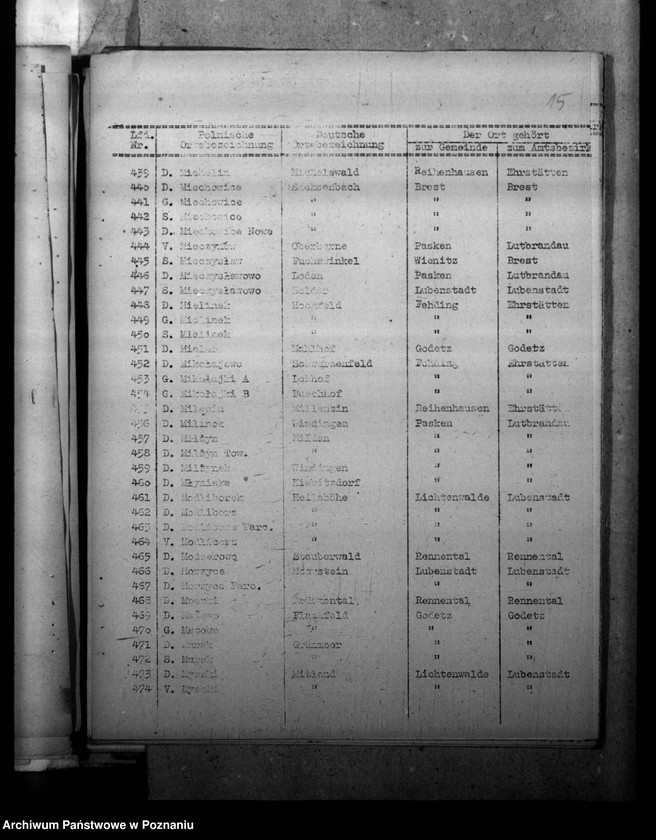 15
Lfd. Polnische Deutsche Der Ort gehört
Nr. Ortsbezeichnung Ortsbezeichnung zur Gemeinde zum Amtsbezirk
439 D. Michelswald Reihenhausen Ehrstätten
440 D. Miechowice Sachsenbach Brest Brest
441 G. Miechowice " " "
442 S. Miechowice " " "
443 D. Miechowice Nowe " " "
444 V. Mieczynów Pasken Lutbrandau
445 S. Mieczysław Fuchswinkel Wienitz Brest
446 D. Mieczysławowo Loden Pasken Lutbrandau
447 S. Mieczysławowo Lubenstadt Lubenstadt
448 D. Mielinek Fehding Ehrstätten
449 G. Mielinek " " "
450 S. Mielinek " " "
451 D. Godetz Godetz
452 D. Mikołajewo Schwarzenfeld Fehding Ehrstätten
453 G. Mikołajki A " "
454 G. Mikołajki B Buschhof " "
D. Milęcin Millentin Reihenhausen Ehrstätten
456 D. Windingen Pasken Lutbrandau
457 D. Milden " "
458 D. Tow. " " "
459 D. Windingen " "
460 D. Kiebitzdorf " "
461 D. Modliborek Heilshöhe Lichtenwalde Lubenstadt
462 D. Modliborz " " "
463 D. Modliborz Parc. " " "
464 V. Modliborz " " "
465 D. Stauberwald Rennental Rennental
466 D. Morzyce Moorstein Lubenstadt Lubenstadt
467 D. Morzyce Parc. " "
468 D. Rennental Rennental
469 D. Flachfeld Godetz Godetz
470 G. " " "
471 D. Murek Grünmoor " "
472 S. Murek " "
473 D. Lichtenwalde Lubenstadt
474 V. " " "
Archiwum Państwowe w Poznaniu